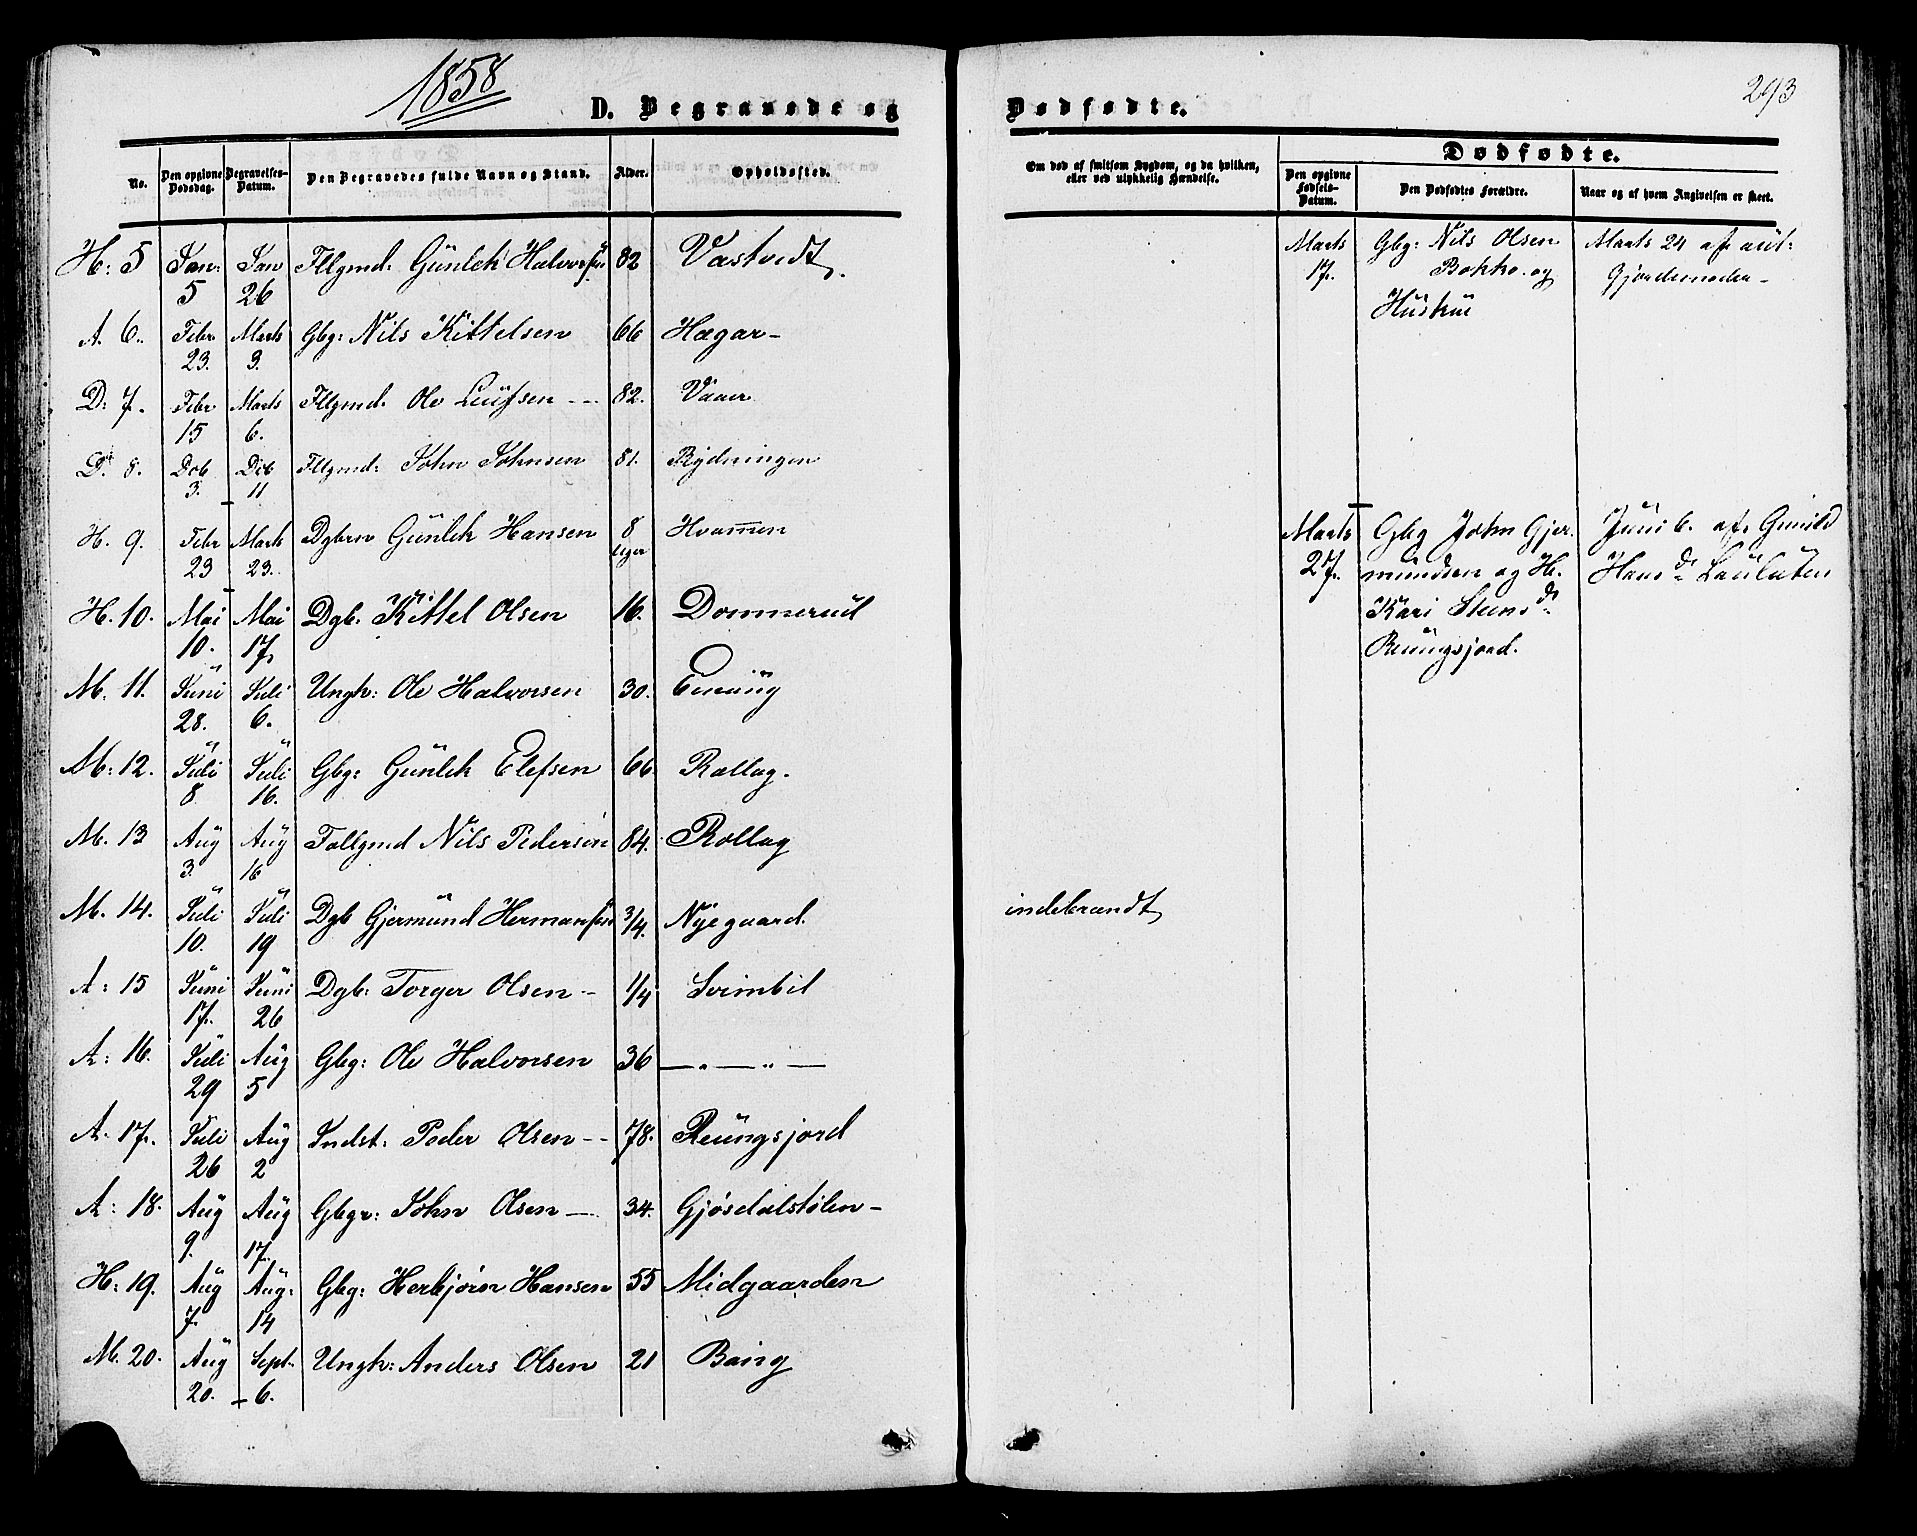 1858
293
D. Begravede og Dødfødte.
No. Den opgivne Dødsdag. Begravelses-Datum. Den Begravedes fulde Navn og Stand. Alder. Opholdssted.
Om død af smitsom Sygdom, og da hvilken, eller ved ulykkelig Hændelse.
Dødfødte.
Den opgivne Fødsels-Datum. Den Dødfødtes Forældre. Naar og af hvem Angivelsen er skeet.
H: 5 Jan: 5 Jan 26 Fllgmd: Günlek Halvorsen 82 Vastvedt.
A. 6. Febr 23. Marts 3. Gbg: Nils Kittelsen 66 Hagar-
D: 7. Febr 15 Marts 6. Fllgmd. Ole 82. Vaaer
D. 8. 3. 11 Fllgmd: John Johnsen 81. Rydningen
H. 9. Febr 23 Marts 23. Dgbrn Günlek Hansen 8 Uger Hvammen
H. 10. Mai 10. Mai 17. Dgb. Kittel Olsen 16. Dommerud
M. 11. Juni 28. Juli 6. Ungk: Ole Halvorsen 30.
M: 12. Juli 8 Juli 16. Gbg: Günlek Elefsen 66 Rollag.
M. 13 Aug 3. Aug 16 Follgmd Nils Pedersen 84. Rollag
M. 14. Juli 10. Juli 19 Dgb Gjermünd Hermansen 3/4. Nyegaard. indebrændt
A: 15 Juni 17. Juni 26 Dgb: Torger Olsen - 1/4 Svimbil
A: 16. Juli 29 Aug 5 Gbg: Ole Halvorsen 36 — " — " —
A. 17. Juli 26 Aug 2 Indst: Peder Olsen -- 78. Reüngsjord
A: 18. Aug 9. Aug 17. Gbgr: John Olsen — 34. Gjøsdalstølen -
H: 19. Aug 7. Aug: 14 Gbg: Herbjørn Hansen 55 Midgaarden
M. 20. Aug 20. Sept. 6. Ungk: Anders Olsen 21 Baing
Marts 17. Gbg: Nils Olsen Bakke og Hüstrü
Marts 24 af aut- Gjordemoder -
Marts 27. Gbg John Gjermündsen og H. Kari Steensdr Reüngsjord.
Juni 6. af Gunild Hansdr